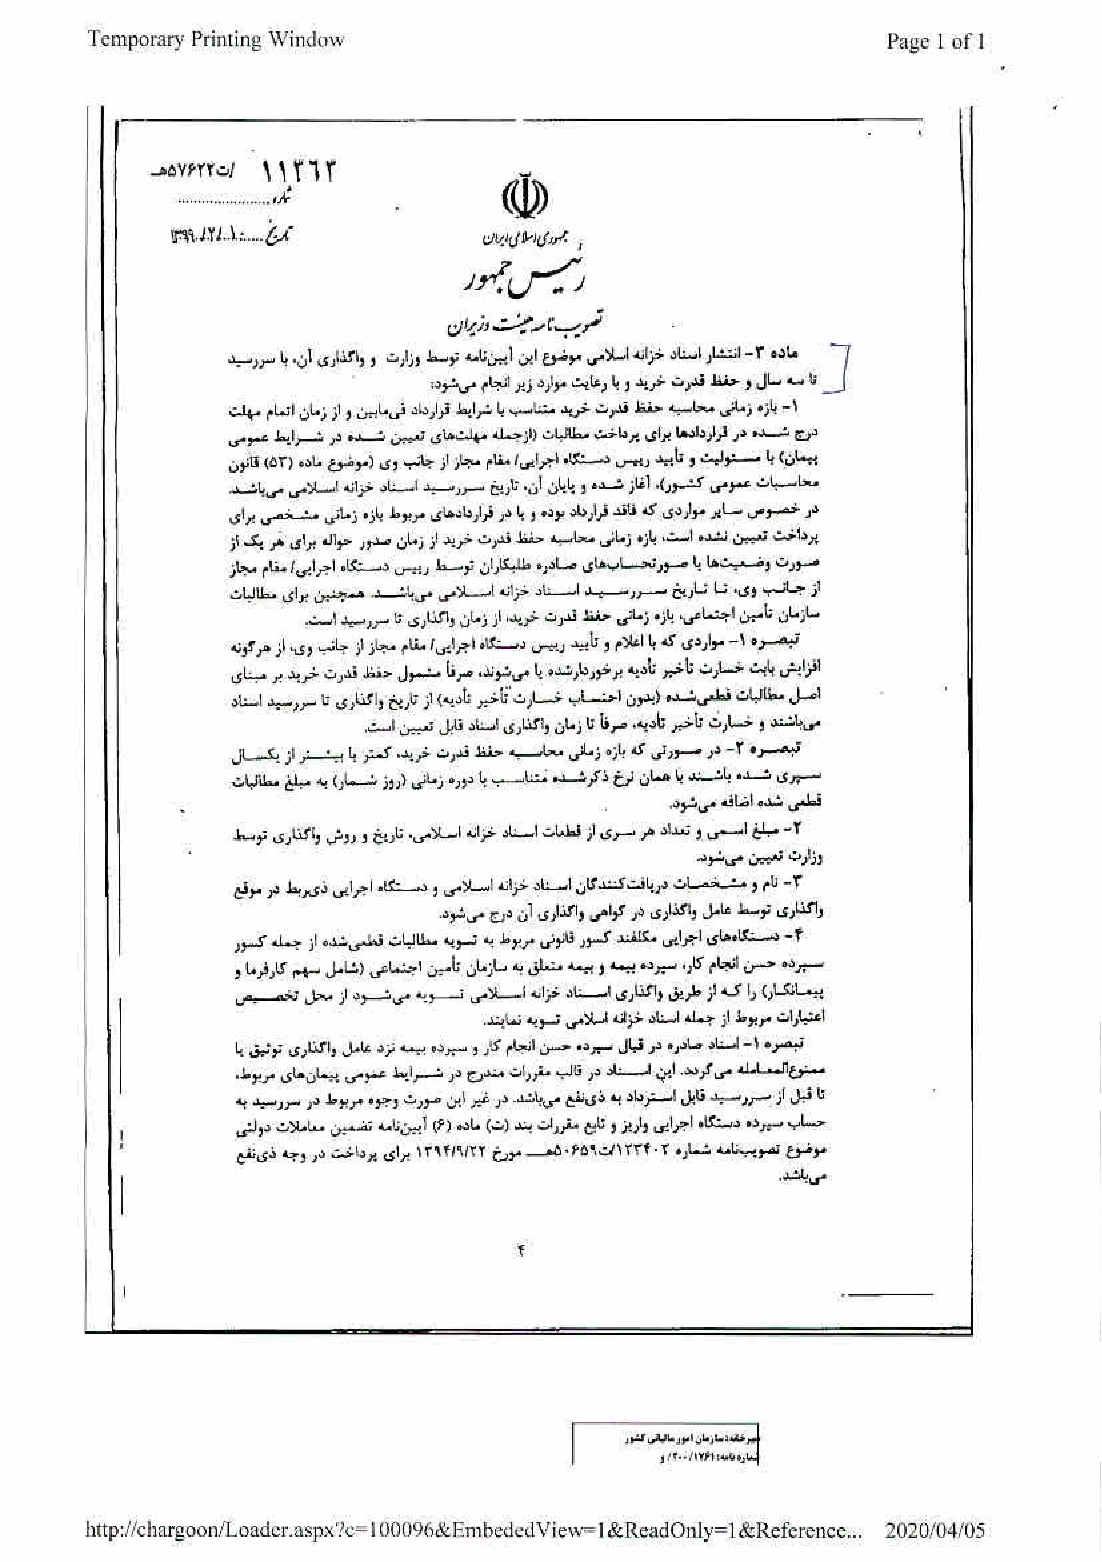 Temporary Printing Window
Page 1 of 1
۱۱۳۶۳ /ت۵۷۶۲۲هـ
شماره
تاریخ ۱۳۹۹/۲/۱۰
جمهوری اسلامی ایران
رئیس جمهور
تصویب نامه هیئت وزیران
ماده ۳- انتشار اسناد خزانه اسلامی موضوع این آیین‌نامه توسط وزارت و واگذاری آن، با سررسید
تا سه سال و حفظ قدرت خرید و با رعایت موارد زیر انجام می‌شود:
۱- بازه زمانی محاسبه حفظ قدرت خرید متناسب با شرایط قرارداد فی‌مابین و از زمان اتمام مهلت
درج شده در قراردادها برای پرداخت مطالبات (ازجمله مهلت‌های تعیین شده در شرایط عمومی
پیمان) با مسئولیت و تأیید رییس دستگاه اجرایی/ مقام مجاز از جانب وی (موضوع ماده (۵۳) قانون
محاسبات عمومی کشور)، آغاز شده و پایان آن، تاریخ سررسید اسناد خزانه اسلامی می‌باشد.
در خصوص سایر مواردی که فاقد قرارداد بوده و یا در قراردادهای مربوط بازه زمانی مشخصی برای
پرداخت تعیین نشده است، بازه زمانی محاسبه حفظ قدرت خرید از زمان صدور حواله برای هر یک از
صورت وضعیت‌ها یا صورتحساب‌های صادره طلبکاران توسط رییس دستگاه اجرایی/ مقام مجاز
از جانب وی، تا تاریخ سررسید اسناد خزانه اسلامی می‌باشد. همچنین برای مطالبات
سازمان تأمین اجتماعی، بازه زمانی حفظ قدرت خرید، از زمان واگذاری تا سررسید است.
تبصره ۱- مواردی که با اعلام و تأیید رییس دستگاه اجرایی/ مقام مجاز از جانب وی، از هرگونه
افزایش بابت خسارت تأخیر تأدیه برخوردار شده یا می‌شوند، صرفاً مشمول حفظ قدرت خرید بر مبنای
اصل مطالبات قطعی‌شده (بدون احتساب خسارت تأخیر تأدیه) از تاریخ واگذاری تا سررسید اسناد
می‌باشند و خسارت تأخیر تأدیه، صرفاً تا زمان واگذاری اسناد قابل تعیین است.
تبصره ۲- در صورتی که بازه زمانی محاسبه حفظ قدرت خرید، کمتر یا بیشتر از یکسال
سپری شده باشند با همان نرخ ذکرشده متناسب با دوره زمانی (روز شمار) به مبلغ مطالبات
قطعی شده اضافه می‌شود.
۲- مبلغ اسمی و تعداد هر سری از قطعات اسناد خزانه اسلامی، تاریخ و روش واگذاری توسط
وزارت تعیین می‌شود.
۳- نام و مشخصات دریافت‌کنندگان اسناد خزانه اسلامی و دستگاه اجرایی ذی‌ربط در موقع
واگذاری توسط عامل واگذاری در گواهی واگذاری آن درج می‌شود.
۴- دستگاه‌های اجرایی مکلفند کسور قانونی مربوط به تسویه مطالبات قطعی‌شده از جمله کسور
سپرده حسن انجام کار، سپرده بیمه و بیمه متعلق به سازمان تأمین اجتماعی (شامل سهم کارفرما و
پیمانکار) را که از طریق واگذاری اسناد خزانه اسلامی تسویه می‌شود از محل تخصیص
اعتبارات مربوط از جمله اسناد خزانه اسلامی تسویه نمایند.
تبصره ۱- اسناد صادره در قبال سپرده حسن انجام کار و سپرده بیمه نزد عامل واگذاری توثیق یا
ممنوع‌المعامله می‌گردد. این اسناد در قالب مقررات مندرج در شرایط عمومی پیمان‌های مربوط،
تا قبل از سررسید قابل استرداد به ذی‌نفع می‌باشد. در غیر این صورت وجوه مربوط در سررسید به
حساب سپرده دستگاه اجرایی واریز و تابع مقررات بند (ت) ماده (۶) آیین‌نامه تضمین معاملات دولتی
موضوع تصویب‌نامه شماره ۱۲۳۴۰۲/ت۵۰۶۵۹هـ مورخ ۱۳۹۴/۹/۲۲ برای پرداخت در وجه ذی‌نفع
می‌باشد.
۴
سازمان امور مالیاتی کشور
http://chargoon/Loader.aspx?c=100096&EmbededView=1&ReadOnly=1&Reference...
2020/04/05